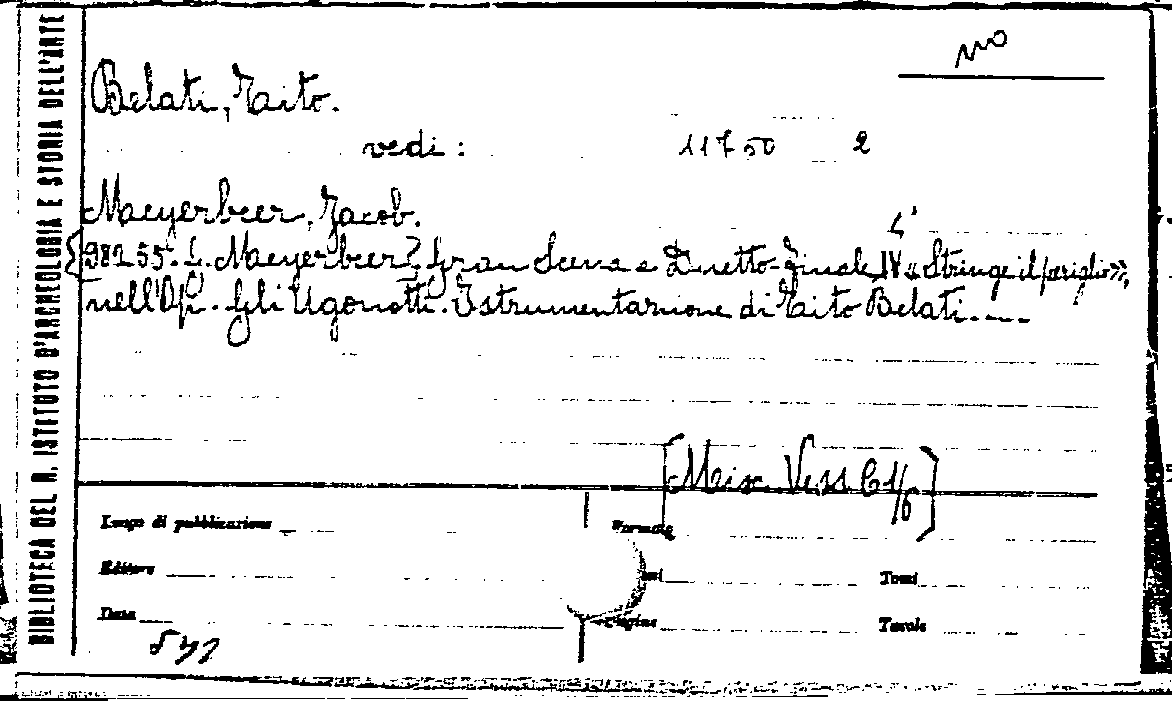 BIBLIOTECA DEL R. ISTITUTO D'ARCHEOLOGIA E STORIA DELL'ARTE
no
Belati, Tito.
vedi : 11750 2
Meyerbeer, Jacob.
98255. Meyerbeer Gran Scena e Duetto-Finale IV « Stringe il periglio »,
nell'Op. Gli Ugonotti. Istrumentazione di Tito Belati.----
[Misc. Vess C 1/6]
Luogo di pubblicazione Formato
Editore Tomi
Data Origine Tavole